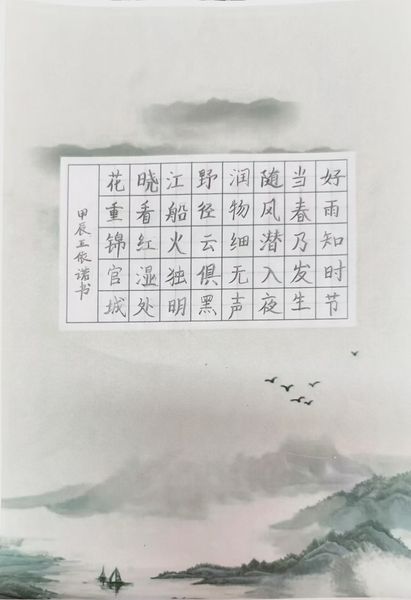 好雨知时节
当春乃发生
随风潜入夜
润物细无声
野径云俱黑
江船火独明
晓看红湿处
花重锦官城
甲辰王依诺书